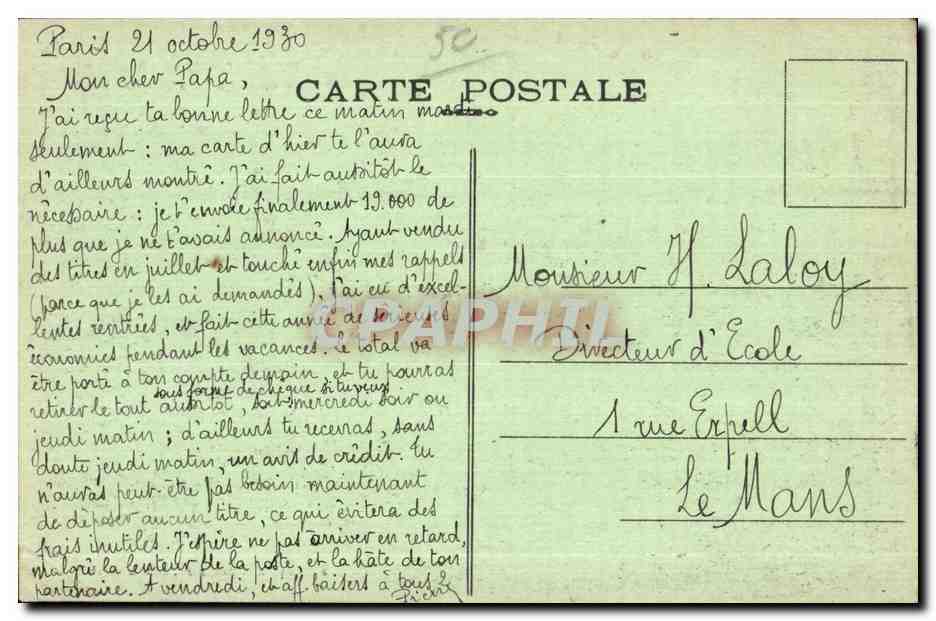 Paris 21 octobre 1930
50
Mon cher Papa,
CARTE POSTALE
J'ai reçu ta bonne lettre ce matin mardi
seulement : ma carte d'hier te l'aura
d'ailleurs montré. J'ai fait aussitôt le
nécessaire : je t'envoie finalement 19.000 de
plus que je ne t'avais annoncé. Ayant vendu
des titres en juillet et touché enfin mes rappels
(parce que je les ai demandés), j'ai eu d'excel-
lentes rentrées, et fait cette année de sérieuses
économies pendant les vacances. Le total va
être porté à ton compte demain, et tu pourras
sous forme de chèque si tu veux
retirer le tout aussitôt, soit mercredi soir ou
jeudi matin ; d'ailleurs tu recevras, sans
doute jeudi matin, un avis de crédit. Tu
n'auras peut-être pas besoin maintenant
de déposer aucun titre, ce qui évitera des
frais inutiles. J'espère ne pas arriver en retard,
malgré la lenteur de la poste, et la hâte de ton
partenaire. A vendredi, et aff. baisers à tous 2
Pierre
Monsieur H. Laloy
Directeur d'Ecole
1 rue Erpell
Le Mans
CPAPHIL